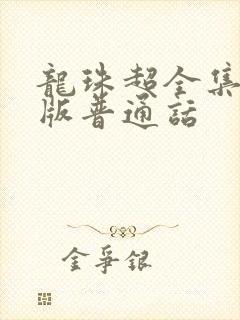 龍珠超全集
版普通話
金爭銀